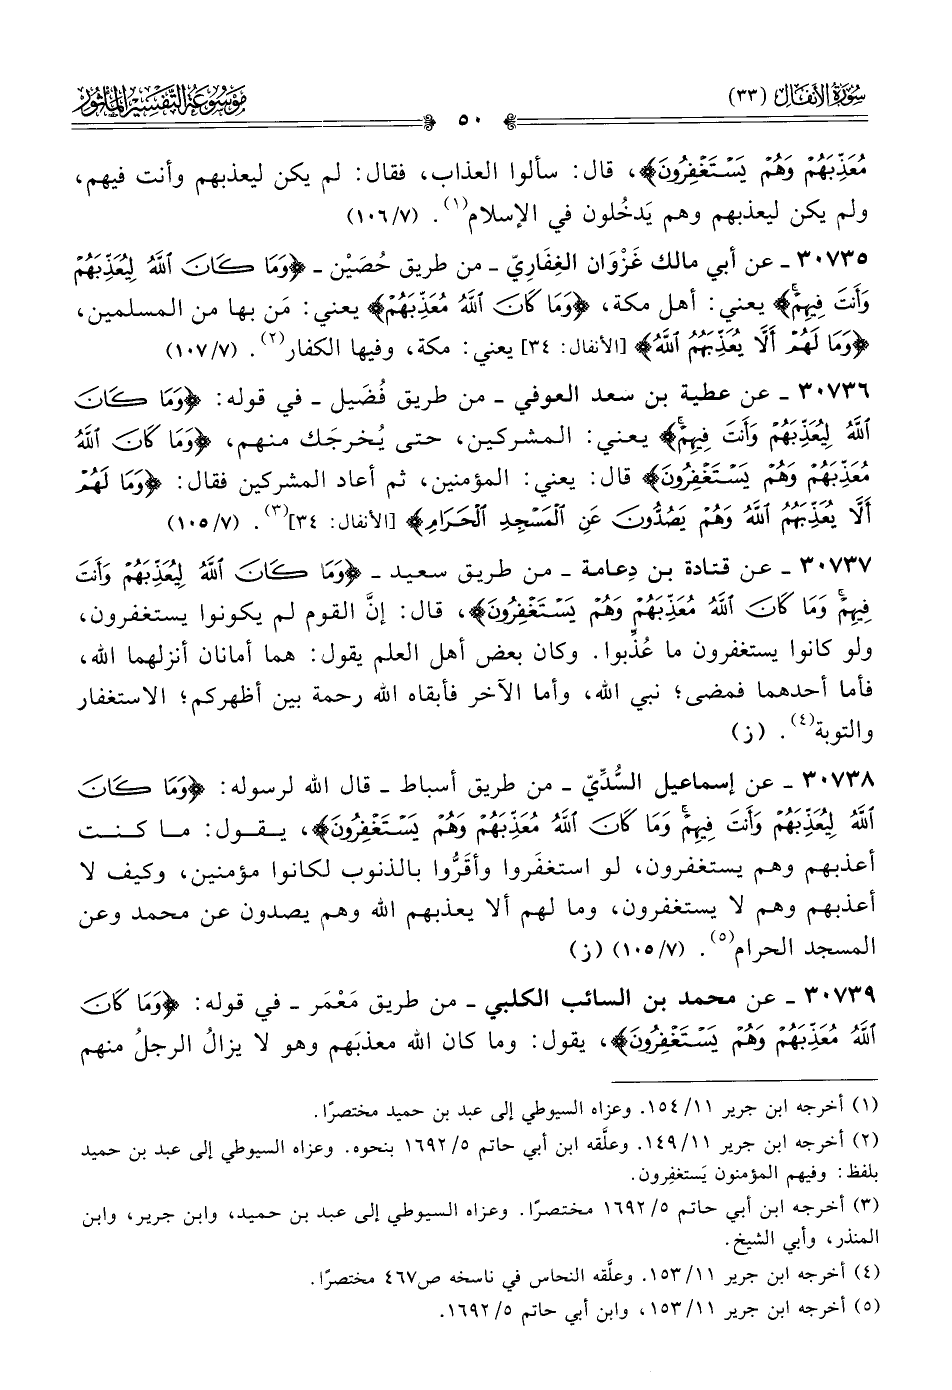 سورة الأنفال (٣٣)
موسوعة التفسير المأثور
٥٠
مُعَذِّبَهُمْ وَهُمْ يَسْتَغْفِرُونَ﴾، قال: سألوا العذاب، فقال: لم يكن ليعذبهم وأنت فيهم،
ولم يكن ليعذبهم وهم يَدخُلون في الإسلام(١). (١٠٦/٧)
٣٠٧٣٥ ـ عن أبي مالك غَزْوَان الغِفَاريّ ـ من طريق حُصَيْن ـ ﴿وَمَا كَانَ ٱللَّهُ لِيُعَذِّبَهُمْ
وَأَنتَ فِيهِمْ﴾ يعني: أهل مكة، ﴿وَمَا كَانَ ٱللَّهُ مُعَذِّبَهُمْ﴾ يعني: مَن بها من المسلمين،
﴿وَمَا لَهُمْ أَلَّا يُعَذِّبَهُمُ ٱللَّهُ﴾ [الأنفال: ٣٤] يعني: مكة، وفيها الكفار(٢). (١٠٧/٧)
٣٠٧٣٦ ـ عن عطية بن سعد العوفي ـ من طريق فُضَيل ـ في قوله: ﴿وَمَا كَانَ
ٱللَّهُ لِيُعَذِّبَهُمْ وَأَنتَ فِيهِمْ﴾ يعني: المشركين، حتى يُخرجَك منهم، ﴿وَمَا كَانَ ٱللَّهُ
مُعَذِّبَهُمْ وَهُمْ يَسْتَغْفِرُونَ﴾ قال: يعني: المؤمنين، ثم أعاد المشركين فقال: ﴿وَمَا لَهُمْ
أَلَّا يُعَذِّبَهُمُ ٱللَّهُ وَهُمْ يَصُدُّونَ عَنِ ٱلْمَسْجِدِ ٱلْحَرَامِ﴾ [الأنفال: ٣٤](٣). (١٠٥/٧)
٣٠٧٣٧ ـ عن قتادة بن دِعامة ـ من طريق سعيد ـ ﴿وَمَا كَانَ ٱللَّهُ لِيُعَذِّبَهُمْ وَأَنتَ
فِيهِمْ وَمَا كَانَ ٱللَّهُ مُعَذِّبَهُمْ وَهُمْ يَسْتَغْفِرُونَ﴾، قال: إنَّ القوم لم يكونوا يستغفرون،
ولو كانوا يستغفرون ما عُذِّبوا. وكان بعض أهل العلم يقول: هما أمانان أنزلهما الله،
فأما أحدهما فمضى؛ نبي الله، وأما الآخر فأبقاه الله رحمة بين أظهركم؛ الاستغفار
والتوبة(٤). (ز)
٣٠٧٣٨ ـ عن إسماعيل السُّدِّيّ ـ من طريق أسباط ـ قال الله لرسوله: ﴿وَمَا كَانَ
ٱللَّهُ لِيُعَذِّبَهُمْ وَأَنتَ فِيهِمْ وَمَا كَانَ ٱللَّهُ مُعَذِّبَهُمْ وَهُمْ يَسْتَغْفِرُونَ﴾، يقول: ما كنت
أعذبهم وهم يستغفرون، لو استغفَروا وأقَرُّوا بالذنوب لكانوا مؤمنين، وكيف لا
أعذبهم وهم لا يستغفرون، وما لهم ألا يعذبهم الله وهم يصدون عن محمد وعن
المسجد الحرام(٥). (١٠٥/٧) (ز)
٣٠٧٣٩ ـ عن محمد بن السائب الكلبي ـ من طريق مَعْمَر ـ في قوله: ﴿وَمَا كَانَ
ٱللَّهُ مُعَذِّبَهُمْ وَهُمْ يَسْتَغْفِرُونَ﴾، يقول: وما كان الله معذبَهم وهو لا يزالُ الرجلُ منهم
(١) أخرجه ابن جرير ١١/ ١٥٤. وعزاه السيوطي إلى عبد بن حميد مختصرًا.
(٢) أخرجه ابن جرير ١١/ ١٤٩. وعلَّقه ابن أبي حاتم ٥/ ١٦٩٢ بنحوه. وعزاه السيوطي إلى عبد بن حميد
بلفظ: وفيهم المؤمنون يَستغفِرون.
(٣) أخرجه ابن أبي حاتم ٥/ ١٦٩٢ مختصرًا. وعزاه السيوطي إلى عبد بن حميد، وابن جرير، وابن
المنذر، وأبي الشيخ.
(٤) أخرجه ابن جرير ١١/ ١٥٣. وعلَّقه النحاس في ناسخه ص٤٦٧ مختصرًا.
(٥) أخرجه ابن جرير ١١/ ١٥٣، وابن أبي حاتم ٥/ ١٦٩٢.